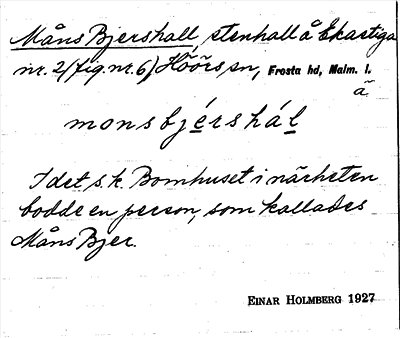 Måns Bjershall, stenhall å Ekastiga
nr. 2 (fig. nr. 6) Höörs sn, Frosta hd, Malm. l.
ã
monsbjérshál
I det s.k. Bomhuset i närheten
bodde en person, som kallades
Måns Bjer.
EINAR HOLMBERG 1927